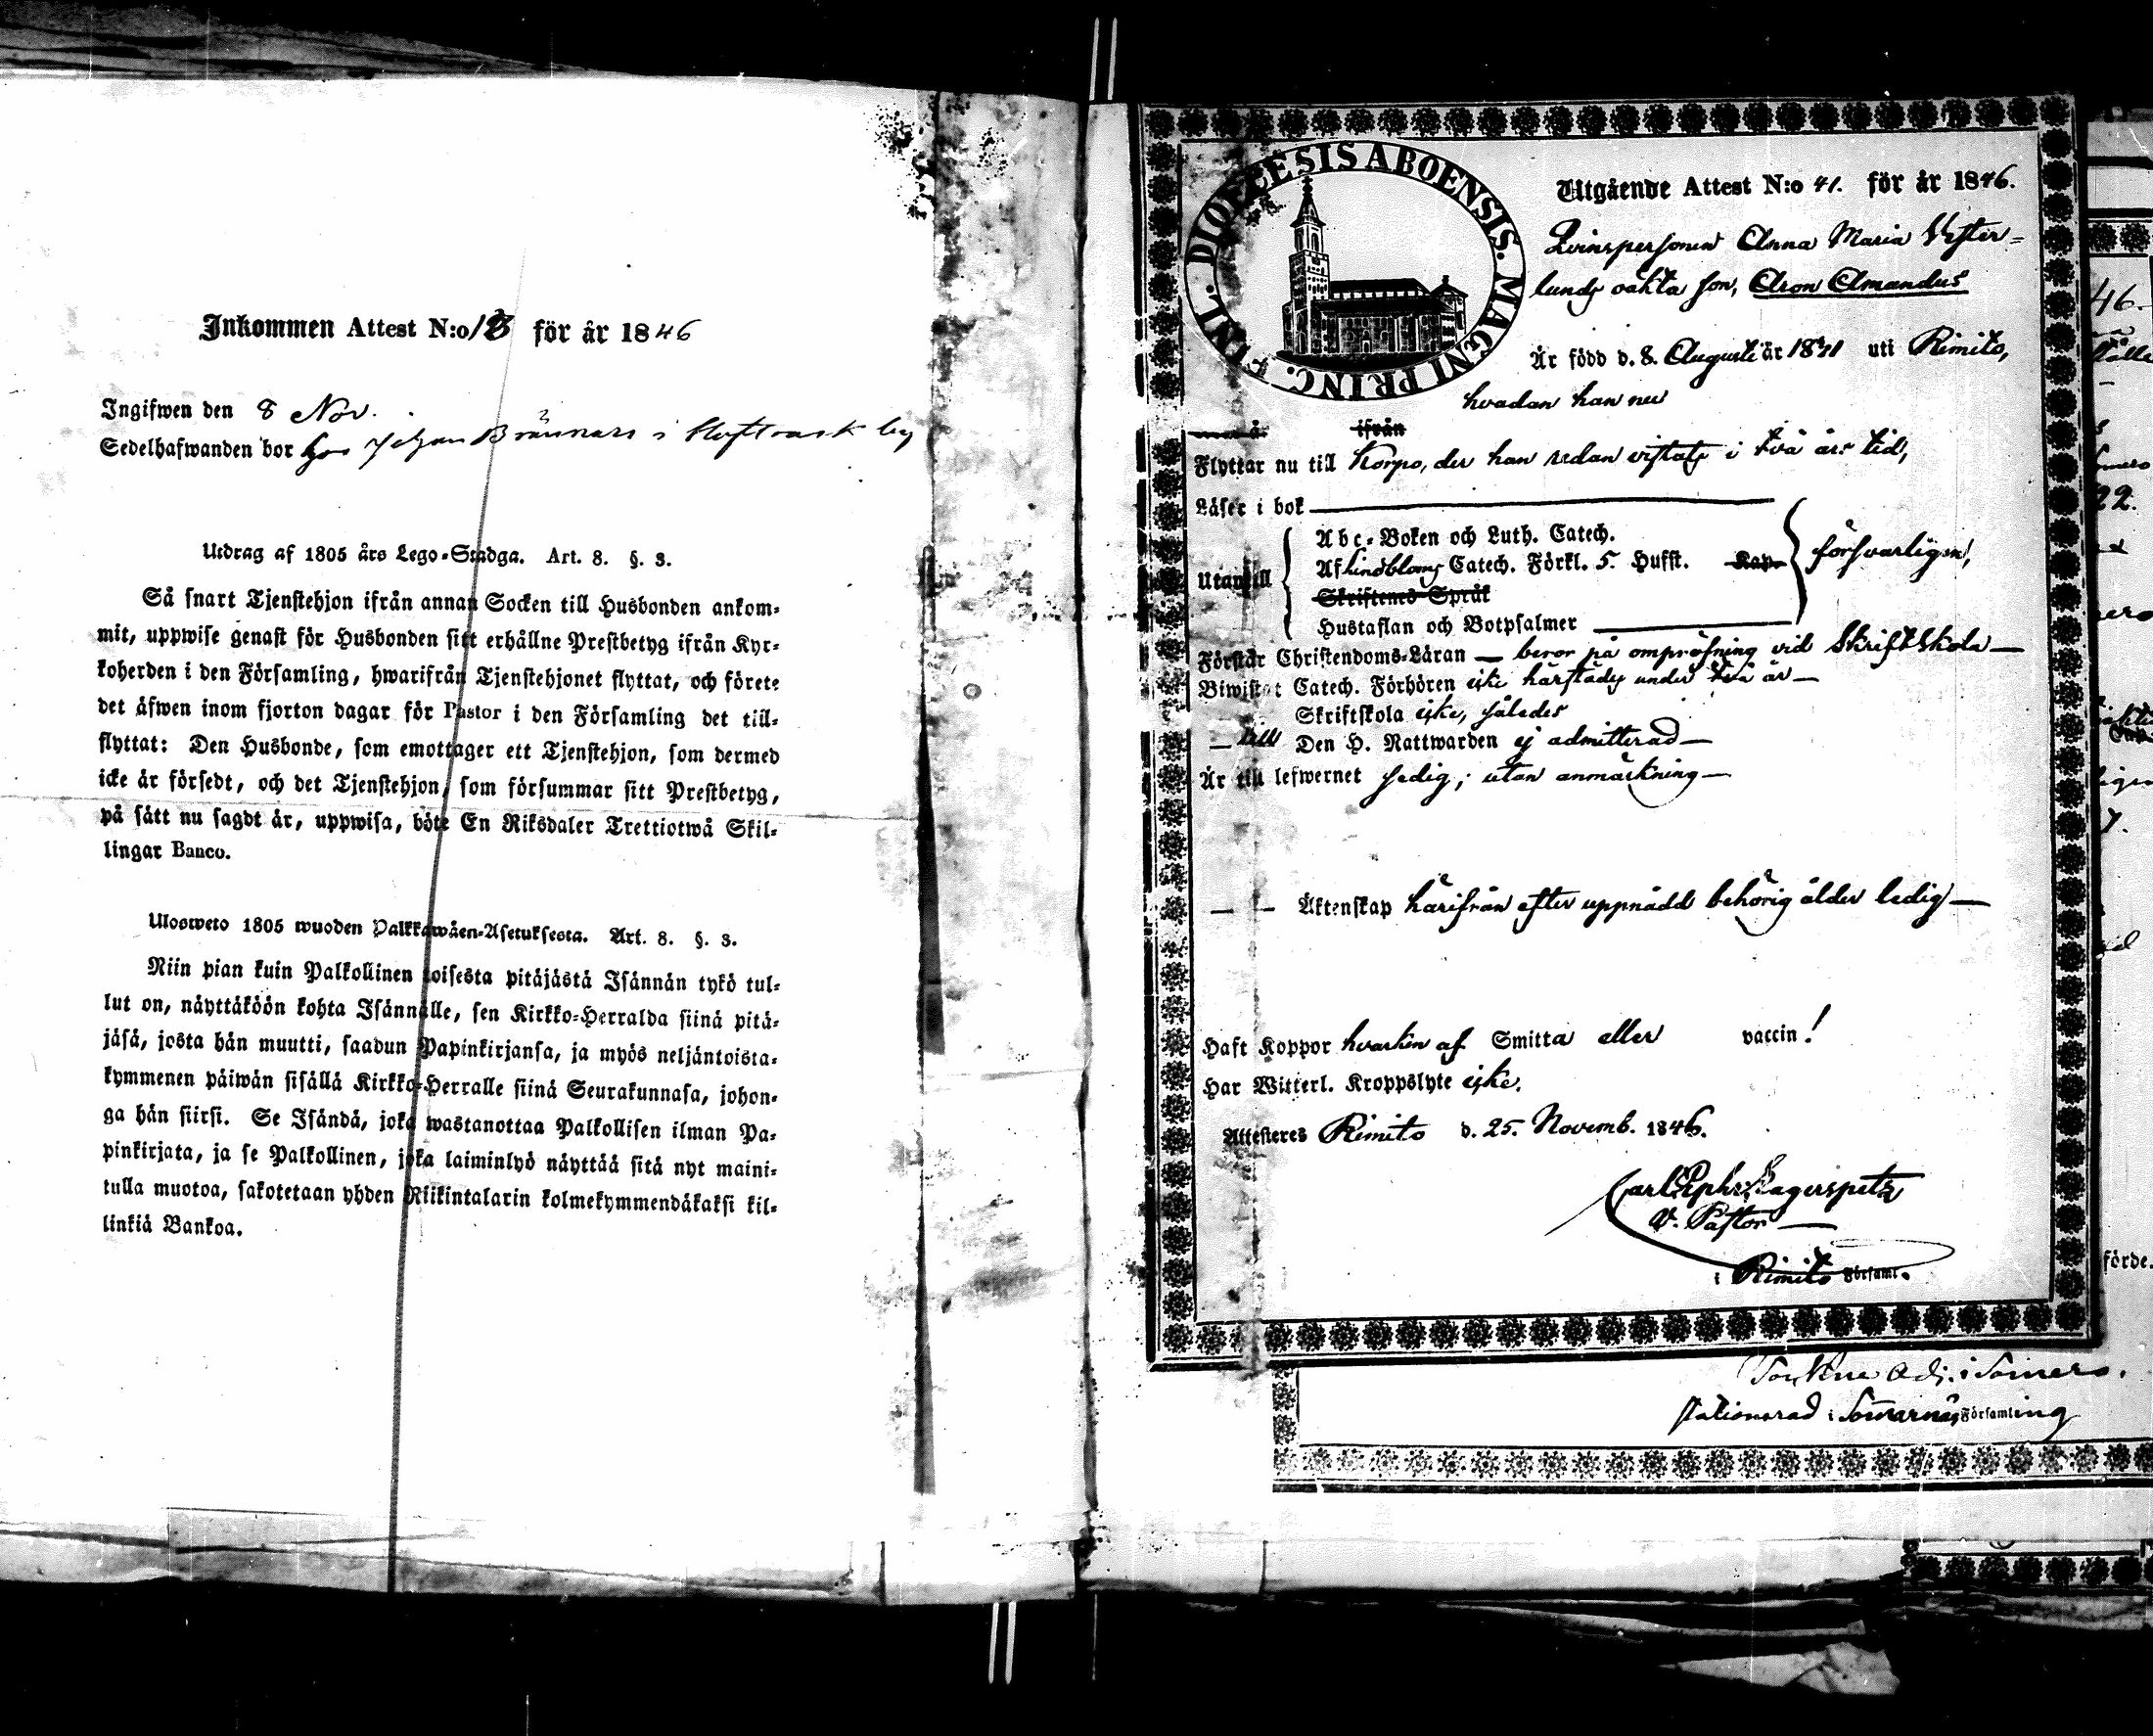 Inkommen Attest N:o 13 för år 1846
Ingifwen den 8 Nov.
Sedelhafwanden bor hos Johan Brännars i by
Utdrag af 1805 års Lego-Stadga. Art. 8. §. 3.
Så snart Tjenstehjon ifrån annan Socken till Husbonden ankom-
mit, uppwise genast för Husbonden sitt erhållne Prestbetyg ifrån Kyr-
koherden i den Församling, hwarifrån Tjenstehjonet flyttat, och förete
det äfwen inom fjorton dagar för Pastor i den Församling det till-
flyttat: Den Husbonde, som emottager ett Tjenstehjon, som dermed
icke är försedt, och det Tjenstehjon, som försummar sitt Prestbetyg,
på sätt nu sagdt är, uppwisa, böte En Riksdaler Trettiotwå Skil-
lingar Banco.
Ulosweto 1805 wuoden Palkkawäen-Asetuksesta. Art. 8. §. 3.
Niin pian kuin Palkollinen toisesta pitäjästä Isännän tykö tul-
lut on, näyttäköön kohta Isännälle, sen Kirkko-Herralda siinä pitä-
jäsä, josta hän muutti, saadun Papinkirjansa, ja myös neljäntoista-
kymmenen päiwän sisällä Kirkko-Herralle siinä Seurakunnasa, johon-
ga hän siirsi. Se Isändä, joka wastanottaa Palkollisen ilman Pa-
pinkirjata, ja se Palkollinen, joka laiminlyö näyttää sitä nyt maini-
tulla muotoa, sakotetaan yhden Riikintalarin kolmekymmendäkaksi kil-
linkiä Bankoa.
DIOECESIS ABOENSIS. MAGNI PRINC. FINL.
Utgående Attest N:o 41. för år 1846.
Qvinspersonen Anna Maria Vester-
lunds oäkta son, Aron Amandus
Är född d. 8. Augusti år 1831 uti Rimito,
hvadan han nu
ifrån
Flyttar nu till Korpo, der han redan vistats i två års tid,
Läser i bok
Abc-Boken och Luth. Catech.
Utantill Af Lindbloms Catech. Förkl. 5. Hufst. Kap. försvarligen,
Skriftenes Språk
Hustaflan och Botpsalmer
Förstår Christendoms-Läran — beror på ompröfning vid Skriftskola —
Biwistat Catech. Förhören icke härstädes under två år —
Skriftskola icke, således
— till Den H. Nattwarden ej admitterad —
Är till lefwernet sedig; utan anmärkning —
— — Äktenskap härifrån efter uppnådd behörig ålder ledig —
Haft Koppor hvarken af Smitta eller vaccin!
Har Witterl. Kroppslyte icke.
Attesteras Rimito d. 25. Novemb. 1846.
Carl Ephr. Lagerspetz
V. Pastor —
i Rimito Församl.
Adj. i Somero.
stationerad i Somernäs Församling
46.
22.
förde.